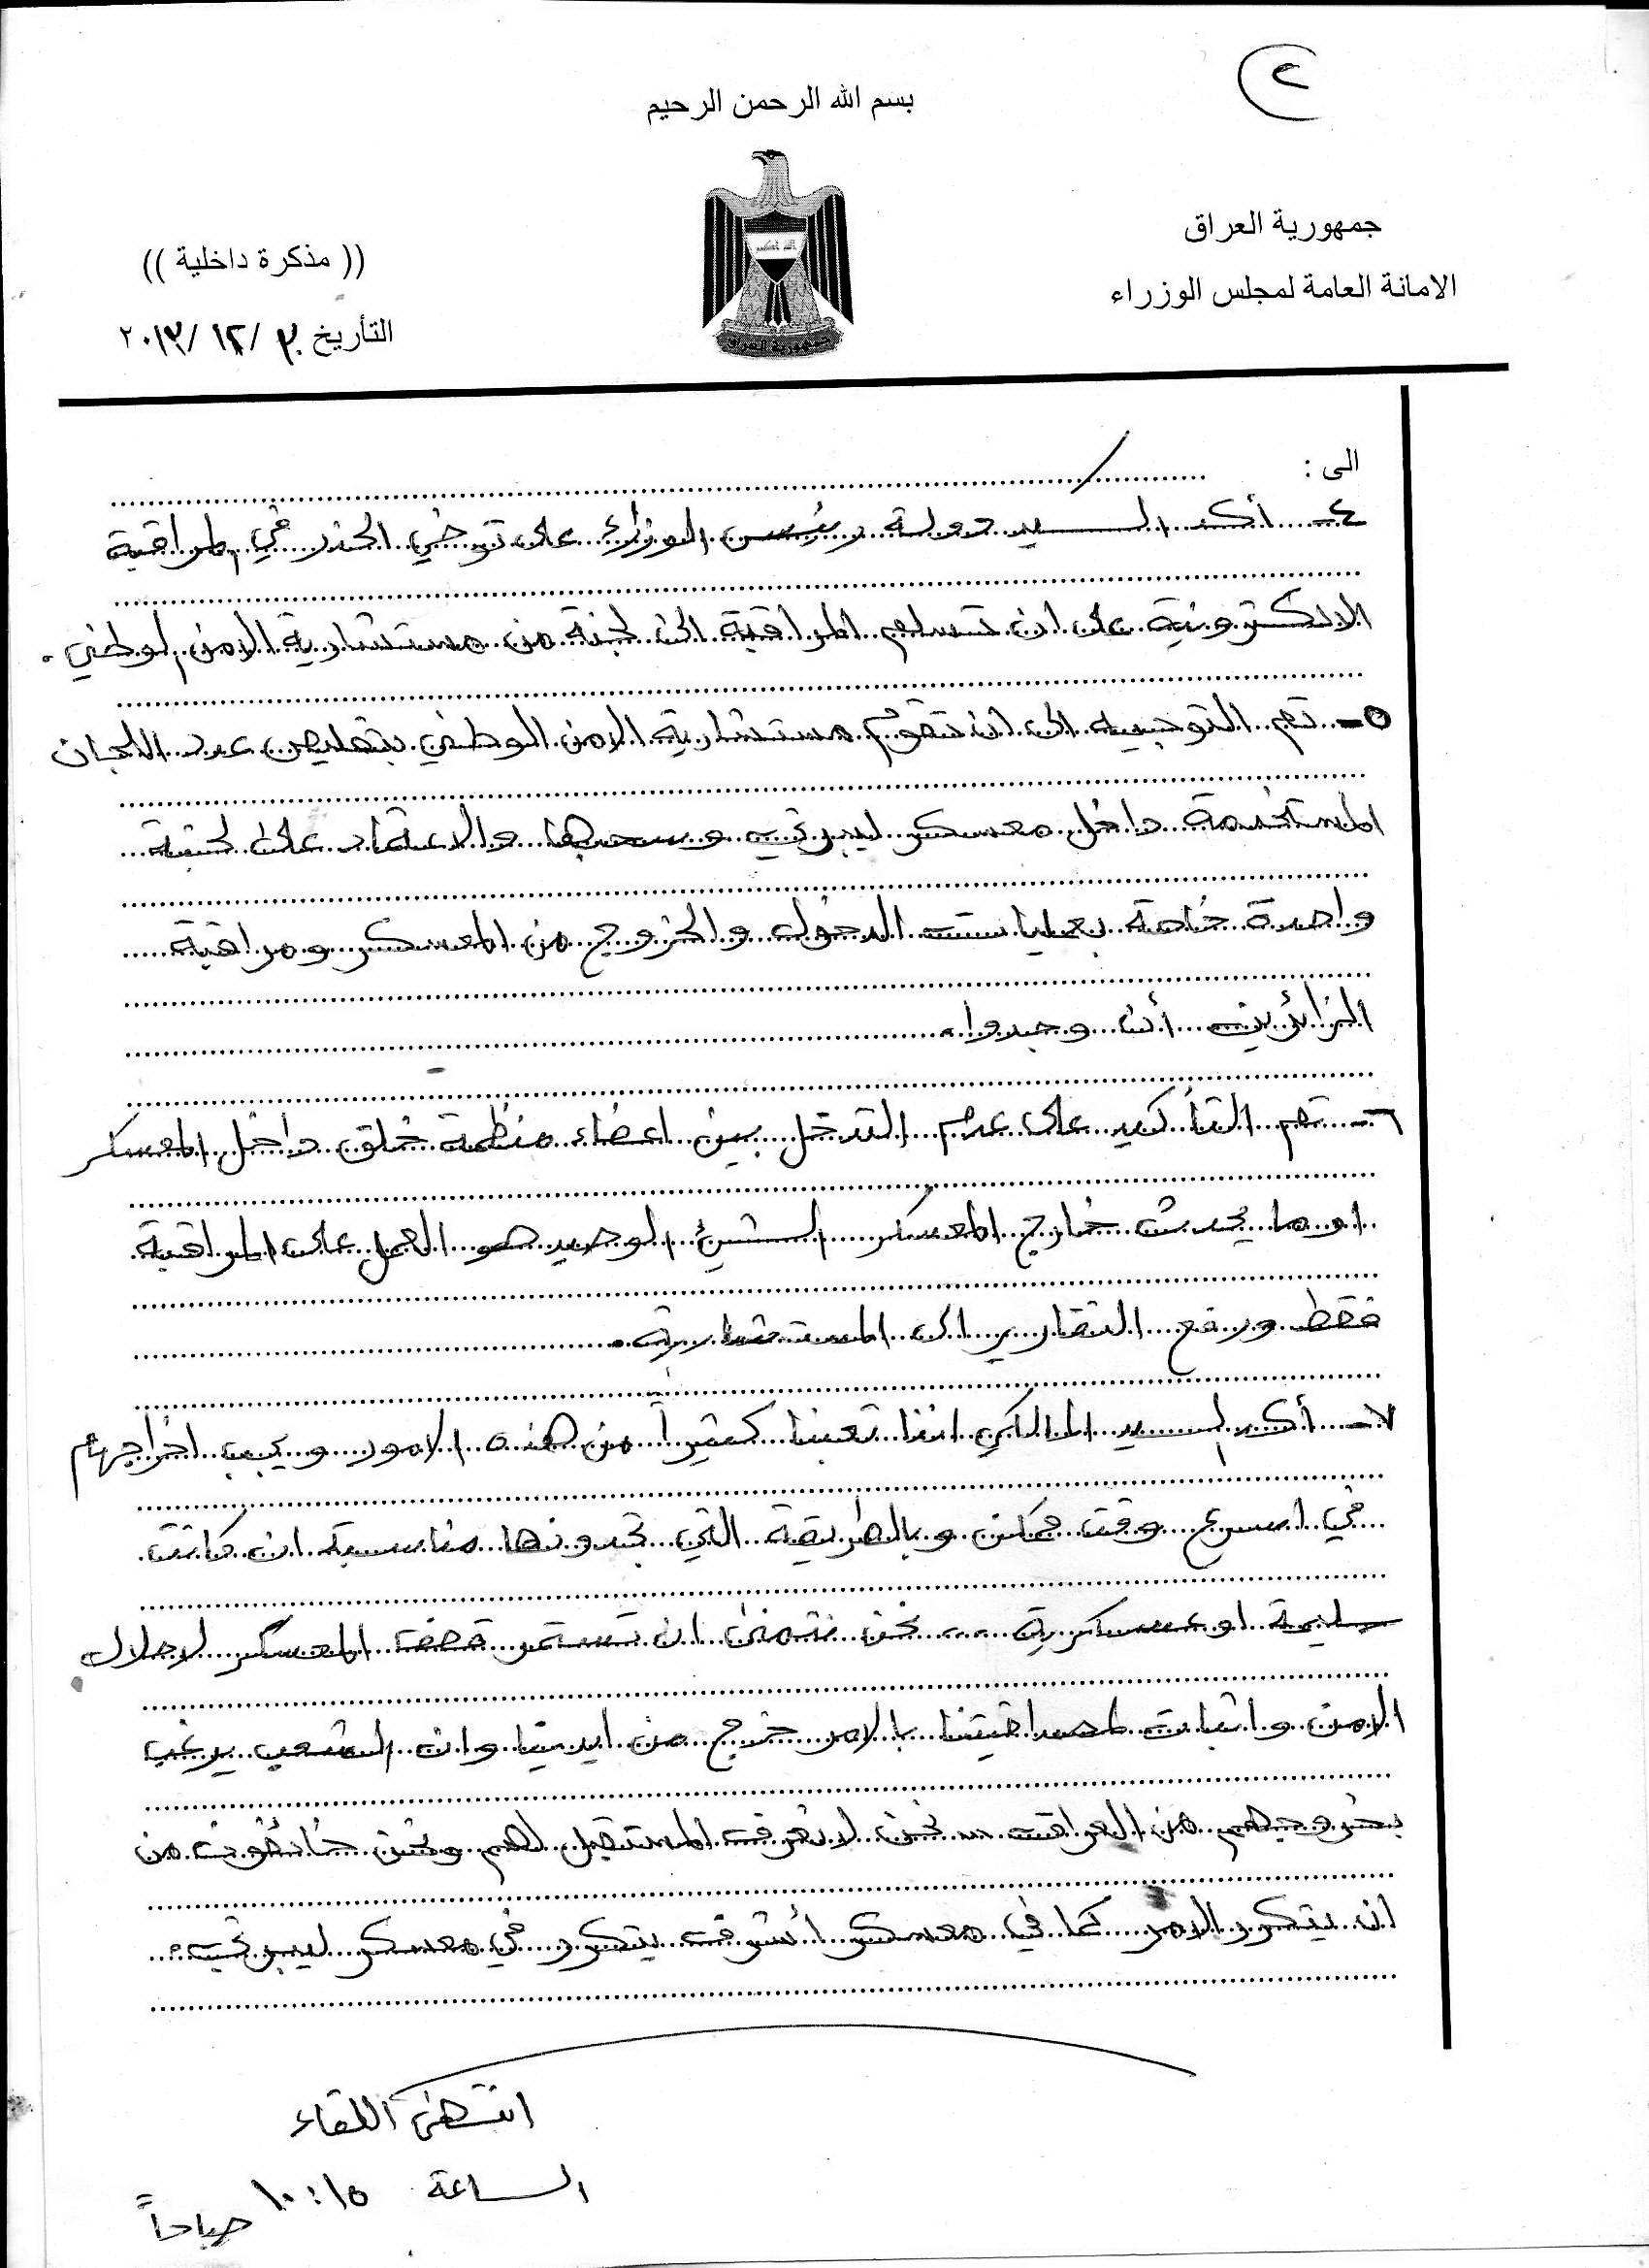 ٢
بسم الله الرحمن الرحيم
جمهورية العراق
الامانة العامة لمجلس الوزراء
(( مذكرة داخلية ))
التأريخ ٣ /١٢ /٢٠١٣
جمهورية العراق
الى :
٤- أكد السيد دولة رئيس الوزراء على توخي الحذر في المراقبة
الالكترونية على ان تسلم المراقبة الى لجنة من مستشارية الامن الوطني .
٥- تم التوجيه الى ان تقوم مستشارية الامن الوطني بتقليص عدد اللجان
المستخدمة داخل معسكر ليبرتي وسحبها والاعتماد على لجنة
واحدة خاصة بعمليات الدخول والخروج من المعسكر ومراقبة
الزائرين أن وجدوا .
٦- تم التأكيد على عدم التدخل بين اعضاء منظمة خلق داخل المعسكر
او ما يحدث خارج المعسكر الشيئ الوحيد هو العمل على المراقبة
فقط ورفع التقارير الى المستشارية .
٧- أكد السيد المالكي اننا تعبنا كثيراً من هذه الامور ويجب اخراجهم
في اسرع وقت ممكن وبالطريقة التي تجدونها مناسبة ان كانت
سلمية او عسكرية .... نحن نتمنى ان تستمر قصف المعسكر لاحلال
الامن واثبات لمصداقيتنا بالامر خرج من ايدينا وان الشعب يرغب
بخروجهم من العراق ... نحن لا نعرف المستقبل لهم ونحن خائفون من
ان يتكرر الامر كما في معسكر أشرف يتكرر في معسكر ليبرتي .
انتهى اللقاء
الساعة ١٠:١٥ صباحاً